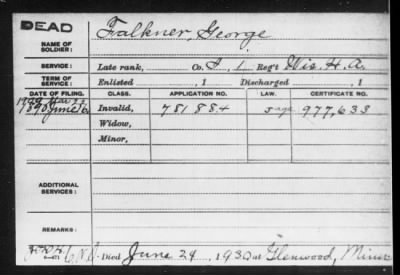 DEAD
NAME OF SOLDIER:
Falkner, George
SERVICE:
Late rank, Co. I, 1 Reg't Wis. H. A.
TERM OF SERVICE:
Enlisted , 1 Discharged , 1
DATE OF FILING. CLASS. APPLICATION NO. LAW. CERTIFICATE NO.
1890 June
Invalid, 781884 977,633
Widow,
Minor,
ADDITIONAL SERVICES:
REMARKS:
Died June 24, 1930 at Glenwood, Minn